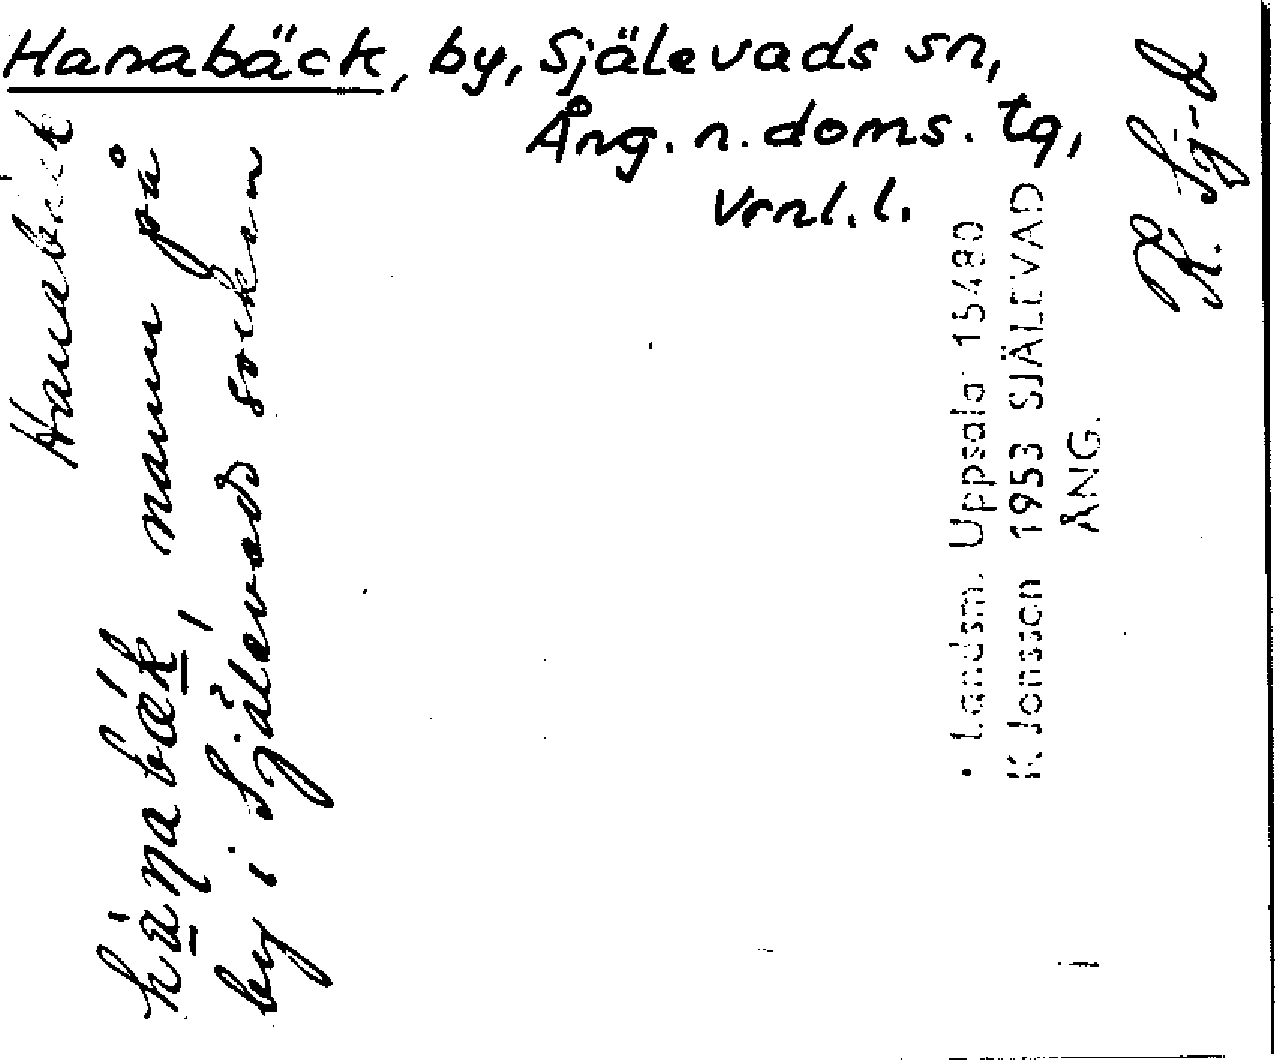 Hanabäck, by, Själevads sn,
Ång. n. doms. tg,
Vrnl. l.
Hanabäck
namn på
by i Själevads socken
Landsm. Uppsala 15480
K Jonsson 1953 SJÄLEVAD
ÅNG.